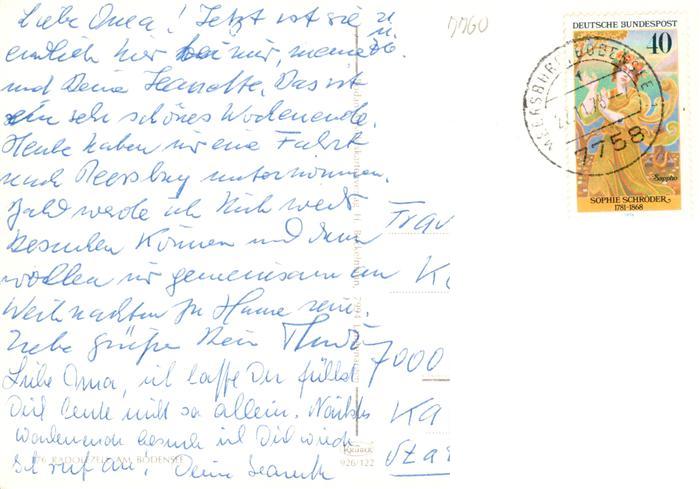 Liebe Oma! Jetzt ist sie
endlich hier bei mir, meine
und Deine Jeanette. Das ist
ein sehr schönes Wochenende.
Heute haben wir eine Fahrt
nach Meersburg unternommen.
Bald werde ich Dich
besuchen können und dann
wollen wir gemeinsam an
Weihnachten zu Hause sein.
Liebe Grüße Dein
Liebe Oma, ich hoffe Du fühlst
Dich heute nicht so allein. Nächstes
Wochenende besuche ich Dich wieder
Deine Jeanette
7760
DEUTSCHE BUNDESPOST
40
Sappho
SOPHIE SCHRÖDER
1781-1868
7758
7000
Ka
76 RADOLFZELL AM BODENSEE
926/122